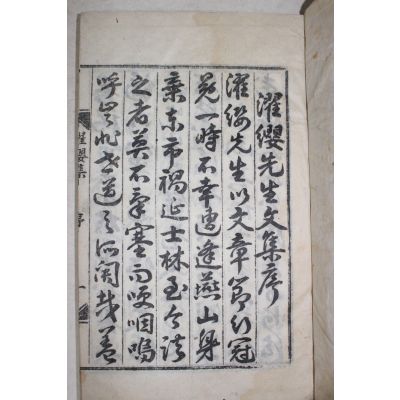 濯纓先生文集序
濯纓先生以文章節行冠
冕一時不幸遭逢燕山身
棄東市禍延士林至今談
之者莫不氣塞而哽咽嗚
呼豈非世道之所關哉蓋
濯纓集 序 一